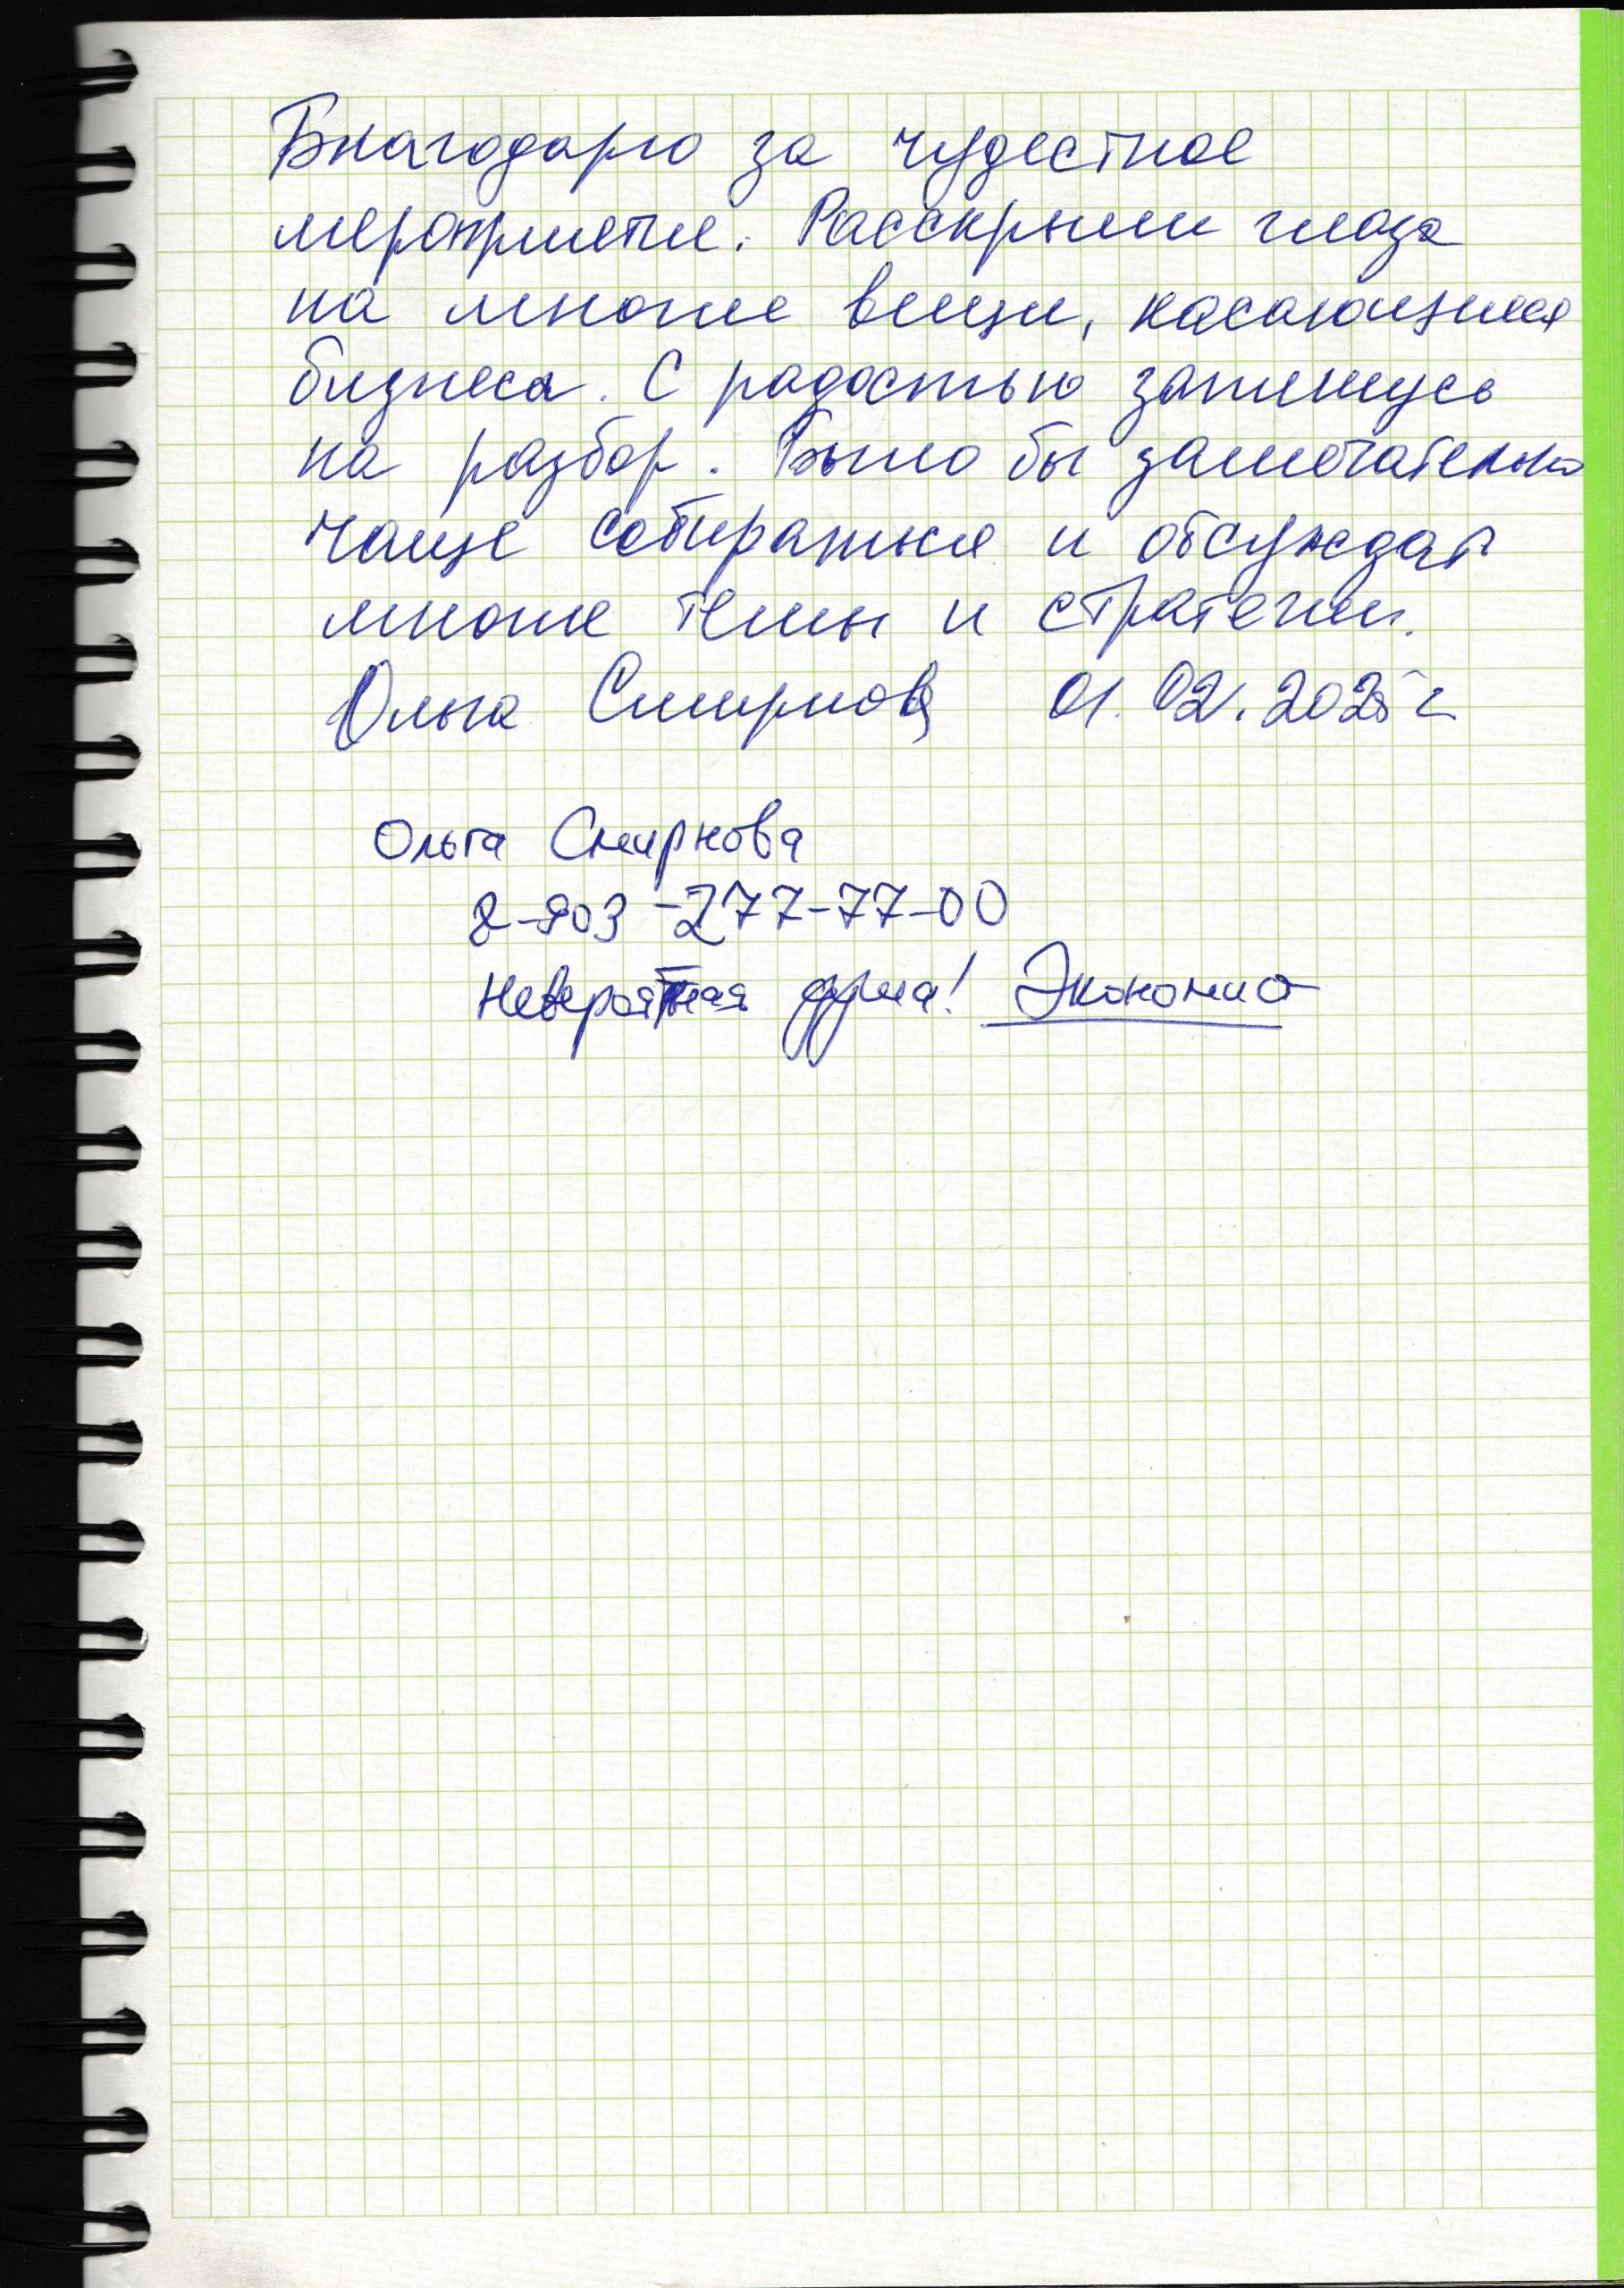 Благодарю за чудестное
мероприятие. Расскрыли глаза
на многие вещи, касающиеся
бизнеса. С радостью запишусь
на разбор. Было бы замечательно
чаще собираться и обсуждать
многие темы и стратегии.
Ольга Смирнова 01.02.2025 г
Ольга Смирнова
8-903-277-77-00
Невероятная душа! Экономио